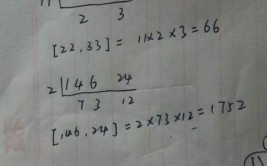 11
2 3
[22,33] = 11×2×3=66
2 146 24
73 12
[146,24] =2×73×12=1752